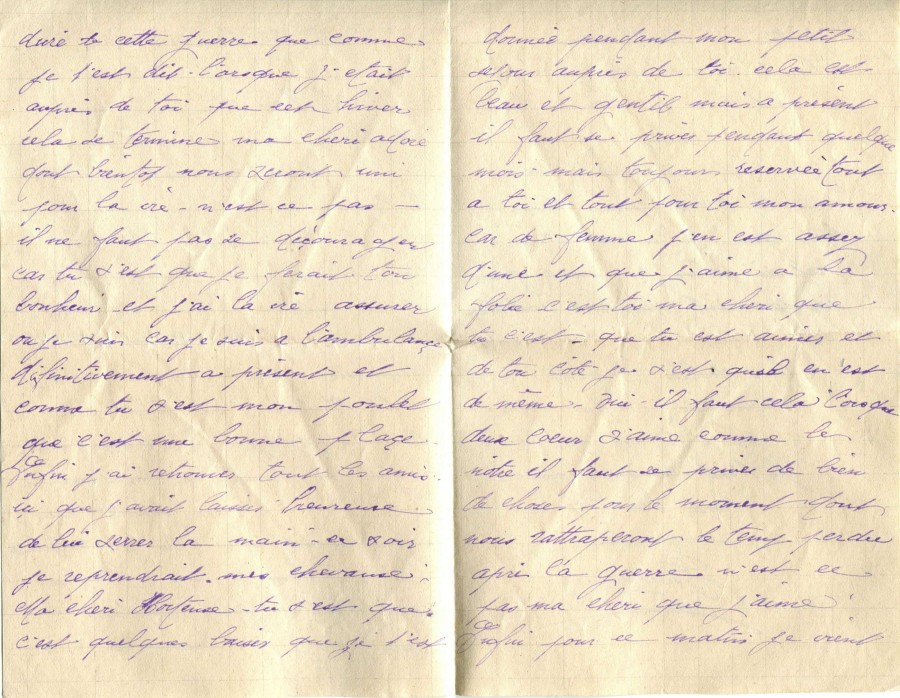 duré te cette guerre que comme
je t'est dit lorsque j'etait
auprès de toi que cet hiver
cela se termine ma cheri adoré
dont bientot nous seront uni
pour la vie - n'est ce pas -
il ne faut pas se décourager
car tu s'est que je ferait ton
bonheur et j'ai la vie assurer
ou je suis car je suis a l'ambulance
définitivement a présent et
comme tu s'est mon poulet
que c'est une bonne plaçe -
Enfin j'ai retrouver tout les amis
ici que j'avait laissés heureuse
de lui serrer la main - ce soir
je reprendrait mes chevause,
Ma cheri Hortense - tu s'est que
c'est quelques baises que je t'est
donnée pendant mon petit
sejour auprès de toi. cela est
beau et gentil mais a présent
il faut se priver pendant quelque
mois - mais toujours reservée tout
a toi et tout pour toi mon amour.
car de femme j'en est assez
d'une et que j'aime a la
folie c'est toi ma cheri que
tu c'est - que tu est aimée et
de ton côté je s'est qu'il en est
de même - Oui - il faut cela lorsque
deux coeur s'aime comme le
nôtre il faut se priver de bien
de choses pour le moment dont
nous rattraperont le temp perdu
après la guerre n'est ce
pas ma cheri que j'aime
Enfin pour ce matin je vient